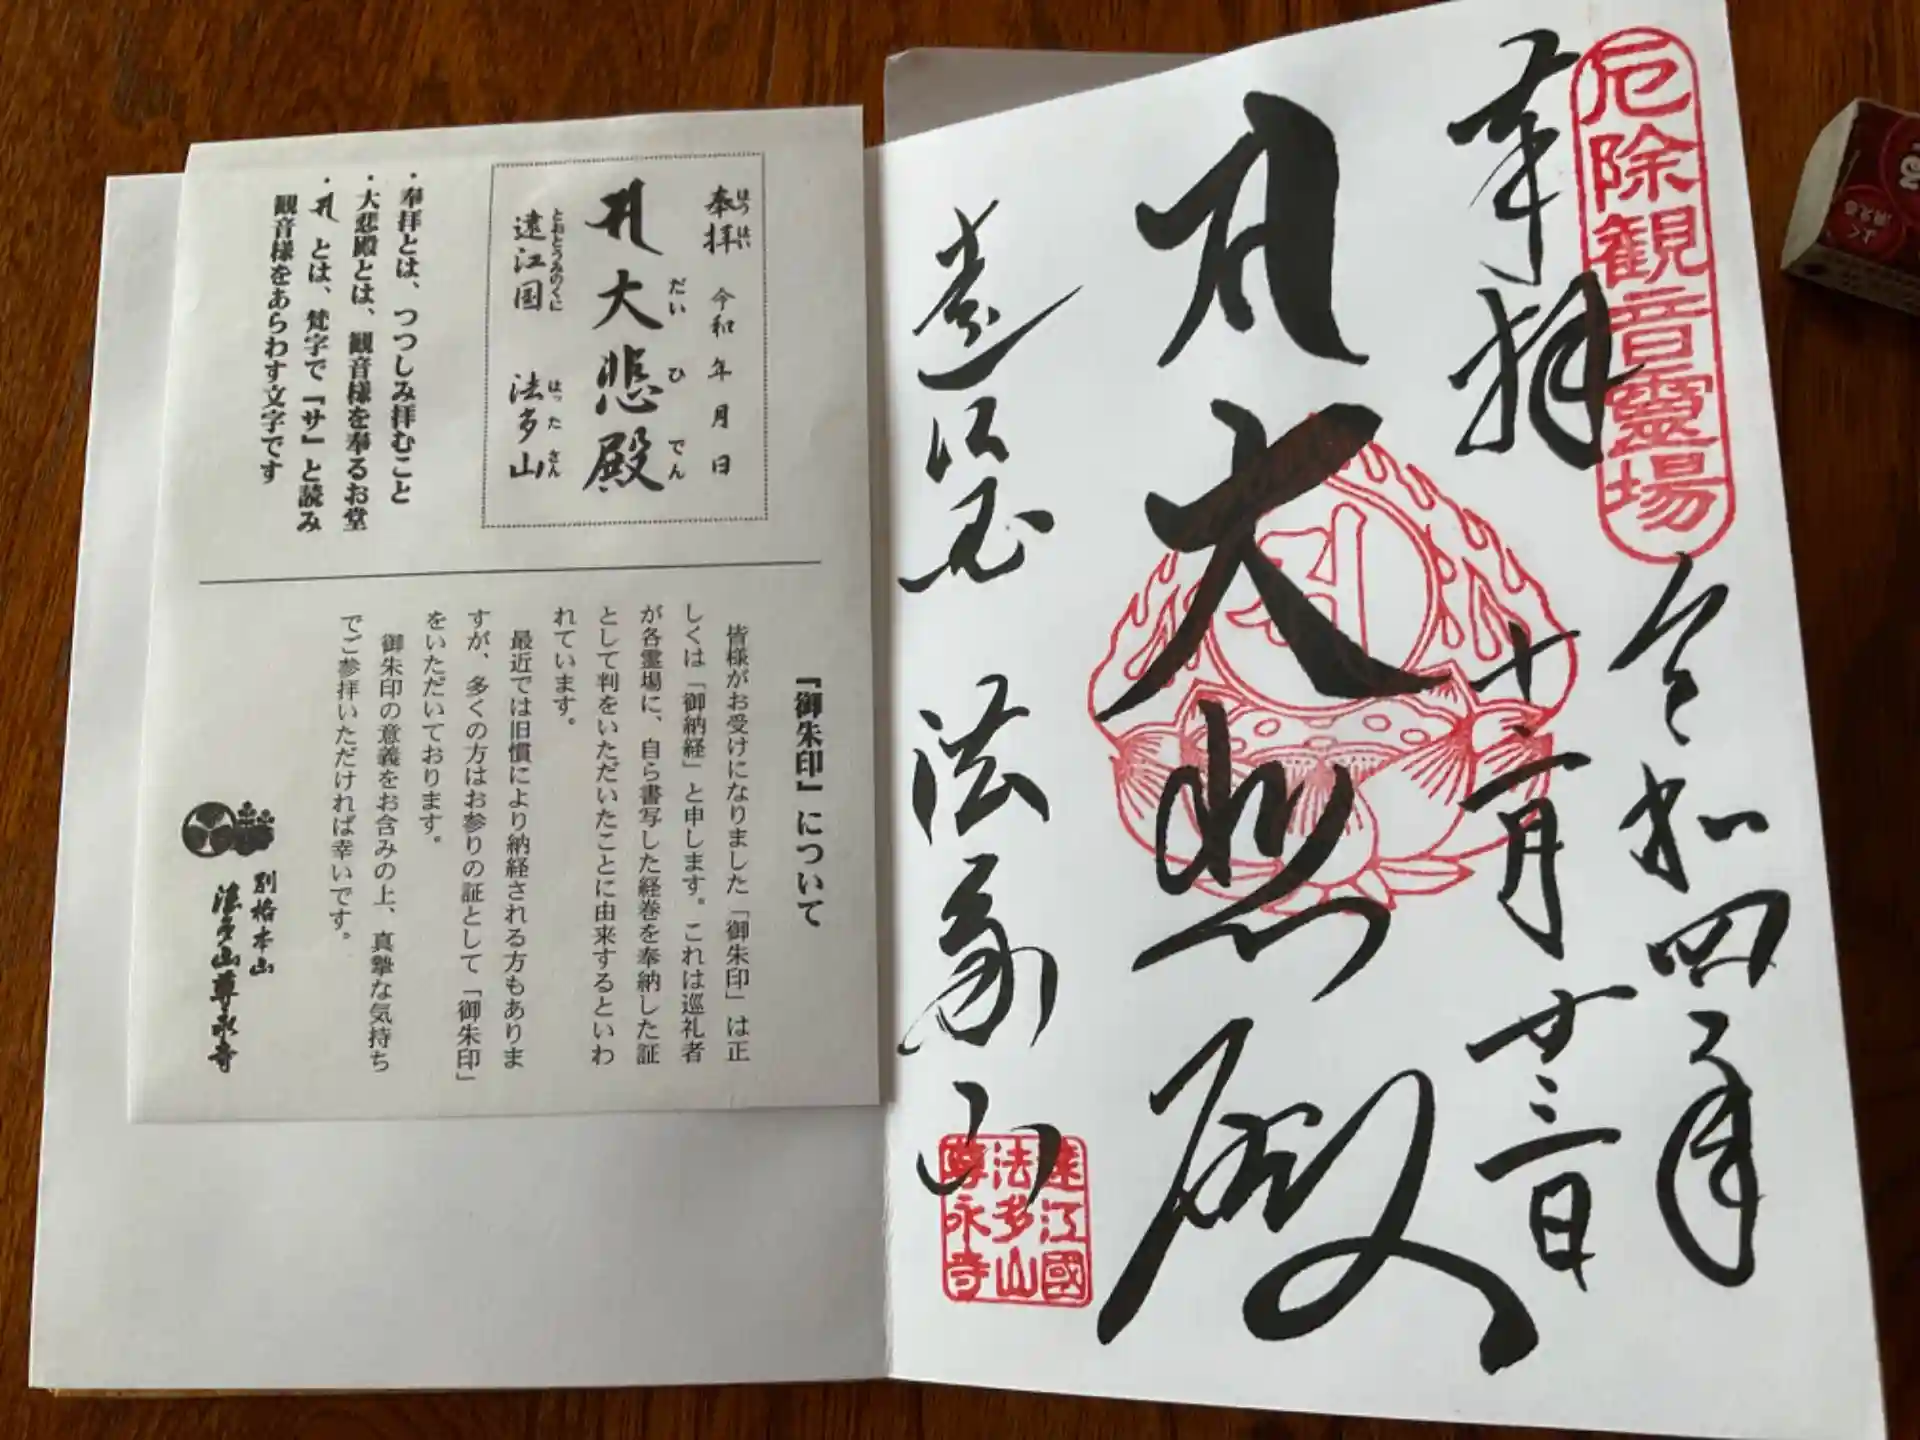 厄除観音霊場
奉拝
令和四年
十二月廿三日
大悲殿
遠江国 法多山
遠江國
法多山
尊永寺
奉拝 令和 年 月 日
ほうはい
大悲殿
だいひでん
遠江国 法多山
とおとうみのくに はったさん
・奉拝とは、つつしみ拝むこと
・大悲殿とは、観音様を奉るお堂
・ とは、梵字で『サ』と読み
観音様をあらわす文字です
『御朱印』について
皆様がお受けになりました「御朱印」は正
しくは「御納経」と申します。これは巡礼者
が各霊場に、自ら書写した経巻を奉納した証
として判をいただいたことに由来するといわ
れています。
最近では旧慣により納経される方もありま
すが、多くの方はお参りの証として「御朱印」
をいただいております。
御朱印の意義をお含みの上、真摯な気持ち
でご参拝いただければ幸いです。
別格本山
法多山尊永寺